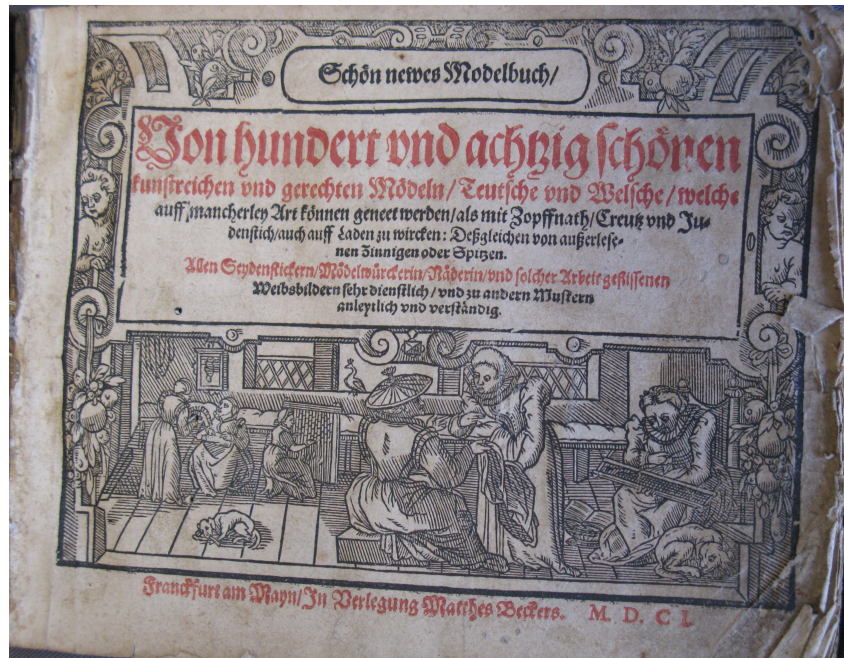 Schön newes Modelbuch/
Von hundert vnd achtzig schönen
kunstreichen vnd gerechten Mödeln/Teutsche vnd Welsche/welche
auff mancherley Art können geneet werden/als mit Zopffnath/Creutz vnd Ju-
denstich/auch auff Laden zu wircken: Deßgleichen von außerlese-
nen Zinnigen oder Spitzen.
Allen Seydenstickern/Mödelwürckerin/Näderin/vnd solcher Arbeit geflissenen
Weibsbildern sehr dienstlich/vnd zu andern Mustern
anleytlich vnd verständig.
Franckfurt am Mayn/In Verlegung Matthes Beckers. M. D. C I.